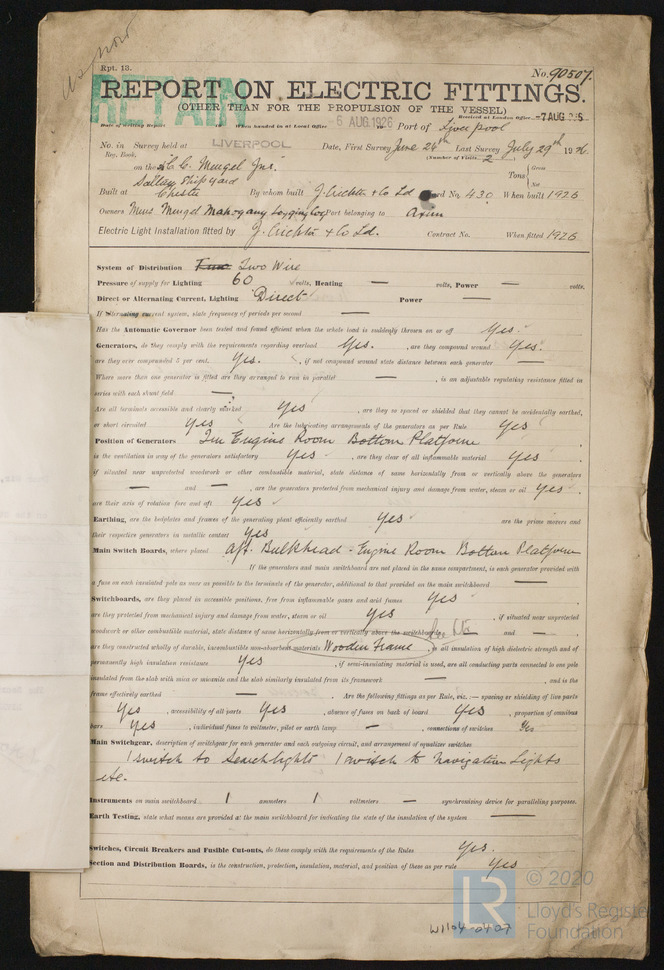 Rpt. 13.
No. 90507.
RETAIN
REPORT ON ELECTRIC FITTINGS.
(OTHER THAN FOR THE PROPULSION OF THE VESSEL)
Received at London Office 7 AUG 1926
Date of writing Report When handed in at Local Office 6 AUG 1926 Port of Liverpool
No. in Survey held at LIVERPOOL Date, First Survey June 24th Last Survey July 29th 1926
Reg. Book. (Number of Visits 2
on the C. C. Mengel Jnr. Tons Gross
Net
Built at Chester By whom built J. Crichton & Co Ld Yard No. 430 When built 1926
Owners Mess Mengel Mahogany Logging Co Port belonging to Axim
Electric Light Installation fitted by J. Crichton & Co Ld. Contract No. When fitted 1926
System of Distribution Two Wire
Pressure of supply for Lighting 60 volts, Heating — volts, Power — volts.
Direct or Alternating Current, Lighting Direct Power —
If alternating current system, state frequency of periods per second —
Has the Automatic Governor been tested and found efficient when the whole load is suddenly thrown on or off Yes.
Generators, do they comply with the requirements regarding overload Yes. , are they compound wound Yes.
are they over compounded 5 per cent. Yes. , if not compound wound state distance between each generator —
Where more than one generator is fitted are they arranged to run in parallel — , is an adjustable regulating resistance fitted in
series with each shunt field —
Are all terminals accessible and clearly marked Yes , are they so spaced or shielded that they cannot be accidentally earthed,
or short circuited Yes Are the lubricating arrangements of the generators as per Rule Yes
Position of Generators In Engine Room Bottom Platform
is the ventilation in way of the generators satisfactory Yes , are they clear of all inflammable material Yes
if situated near unprotected woodwork or other combustible material, state distance of same horizontally from or vertically above the generators
— and — , are the generators protected from mechanical injury and damage from water, steam or oil Yes.
are their axis of rotation fore and aft Yes
Earthing, are the bedplates and frames of the generating plant efficiently earthed Yes are the prime movers and
their respective generators in metallic contact Yes
Main Switch Boards, where placed Aft Bulkhead - Engine Room Bottom Platform
If the generators and main switchboard are not placed in the same compartment, is each generator provided with
a fuse on each insulated pole as near as possible to the terminals of the generator, additional to that provided on the main switchboard —
Switchboards, are they placed in accessible positions, free from inflammable gases and acid fumes Yes
are they protected from mechanical injury and damage from water, steam or oil Yes , if situated near unprotected
woodwork or other combustible material, state distance of same horizontally from or vertically above the switchboards and —
are they constructed wholly of durable, incombustible non-absorbent materials Wooden Frame , is all insulation of high dielectric strength and of
permanently high insulation resistance Yes , if semi-insulating material is used, are all conducting parts connected to one pole
insulated from the slab with mica or micanite and the slab similarly insulated from its framework — , and is the
frame effectively earthed — Are the following fittings as per Rule, viz. :— spacing or shielding of live parts
Yes , accessibility of all parts Yes , absence of fuses on back of board Yes , proportion of omnibus
bars Yes , individual fuses to voltmeter, pilot or earth lamp — , connections of switches Yes
Main Switchgear, description of switchgear for each generator and each outgoing circuit, and arrangement of equalizer switches
1 switch to Searchlight 1 switch to Navigation Lights
etc.
Instruments on main switchboard 1 ammeters 1 voltmeters — synchronizing device for paralleling purposes.
Earth Testing, state what means are provided at the main switchboard for indicating the state of the insulation of the system —
Switches, Circuit Breakers and Fusible Cut-outs, do these comply with the requirements of the Rules Yes.
Section and Distribution Boards, is the construction, protection, insulation, material, and position of these as per rule Yes
© 2020
Lloyd's Register
Foundation
W1104-0107